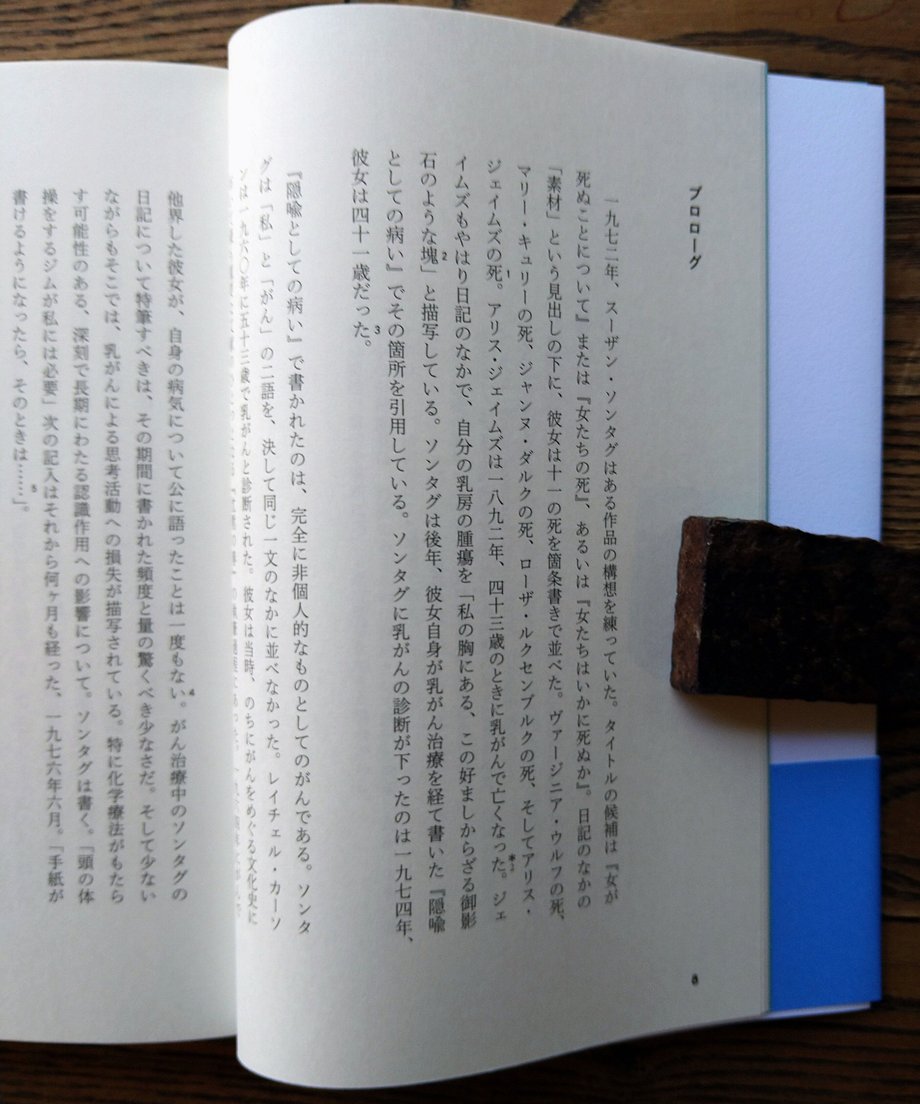 プロローグ
一九七二年、スーザン・ソンタグはある作品の構想を練っていた。タイトルの候補は『女が
死ぬことについて』または『女たちの死』、あるいは『女たちはいかに死ぬか』。日記のなかの
「素材」という見出しの下に、彼女は十一の死を箇条書きで並べた。ヴァージニア・ウルフの死、
マリー・キュリーの死、ジャンヌ・ダルクの死、ローザ・ルクセンブルクの死、そしてアリス・
ジェイムズの死。1アリス・ジェイムズは一八九二年、四十三歳のときに乳がんで亡くなった。*1ジェ
イムズもやはり日記のなかで、自分の乳房の腫瘍を「私の胸にある、この好ましからざる御影
石のような塊」2と描写している。ソンタグは後年、彼女自身が乳がん治療を経て書いた『隠喩
としての病い』でその箇所を引用している。ソンタグに乳がんの診断が下ったのは一九七四年、
彼女は四十一歳だった。3
『隠喩としての病い』で書かれたのは、完全に非個人的なものとしてのがんである。ソンタ
グは「私」と「がん」の二語を、決して同じ一文のなかに並べなかった。レイチェル・カーソ
ンは一九六〇年に五十三歳で乳がんと診断された。彼女は当時、のちにがんをめぐる文化史に
8
他界した彼女が、自身の病気について公に語ったことは一度もない。4がん治療中のソンタグの
日記について特筆すべきは、その期間に書かれた頻度と量の驚くべき少なさだ。そして少ない
ながらもそこでは、乳がんによる思考活動への損失が描写されている。特に化学療法がもたら
す可能性のある、深刻で長期にわたる認識作用への影響について。ソンタグは書く。「頭の体
操をするジムが私には必要」次の記入はそれから何ヶ月も経った、一九七六年六月。「手紙が
書けるようになったら、そのときは……」。5